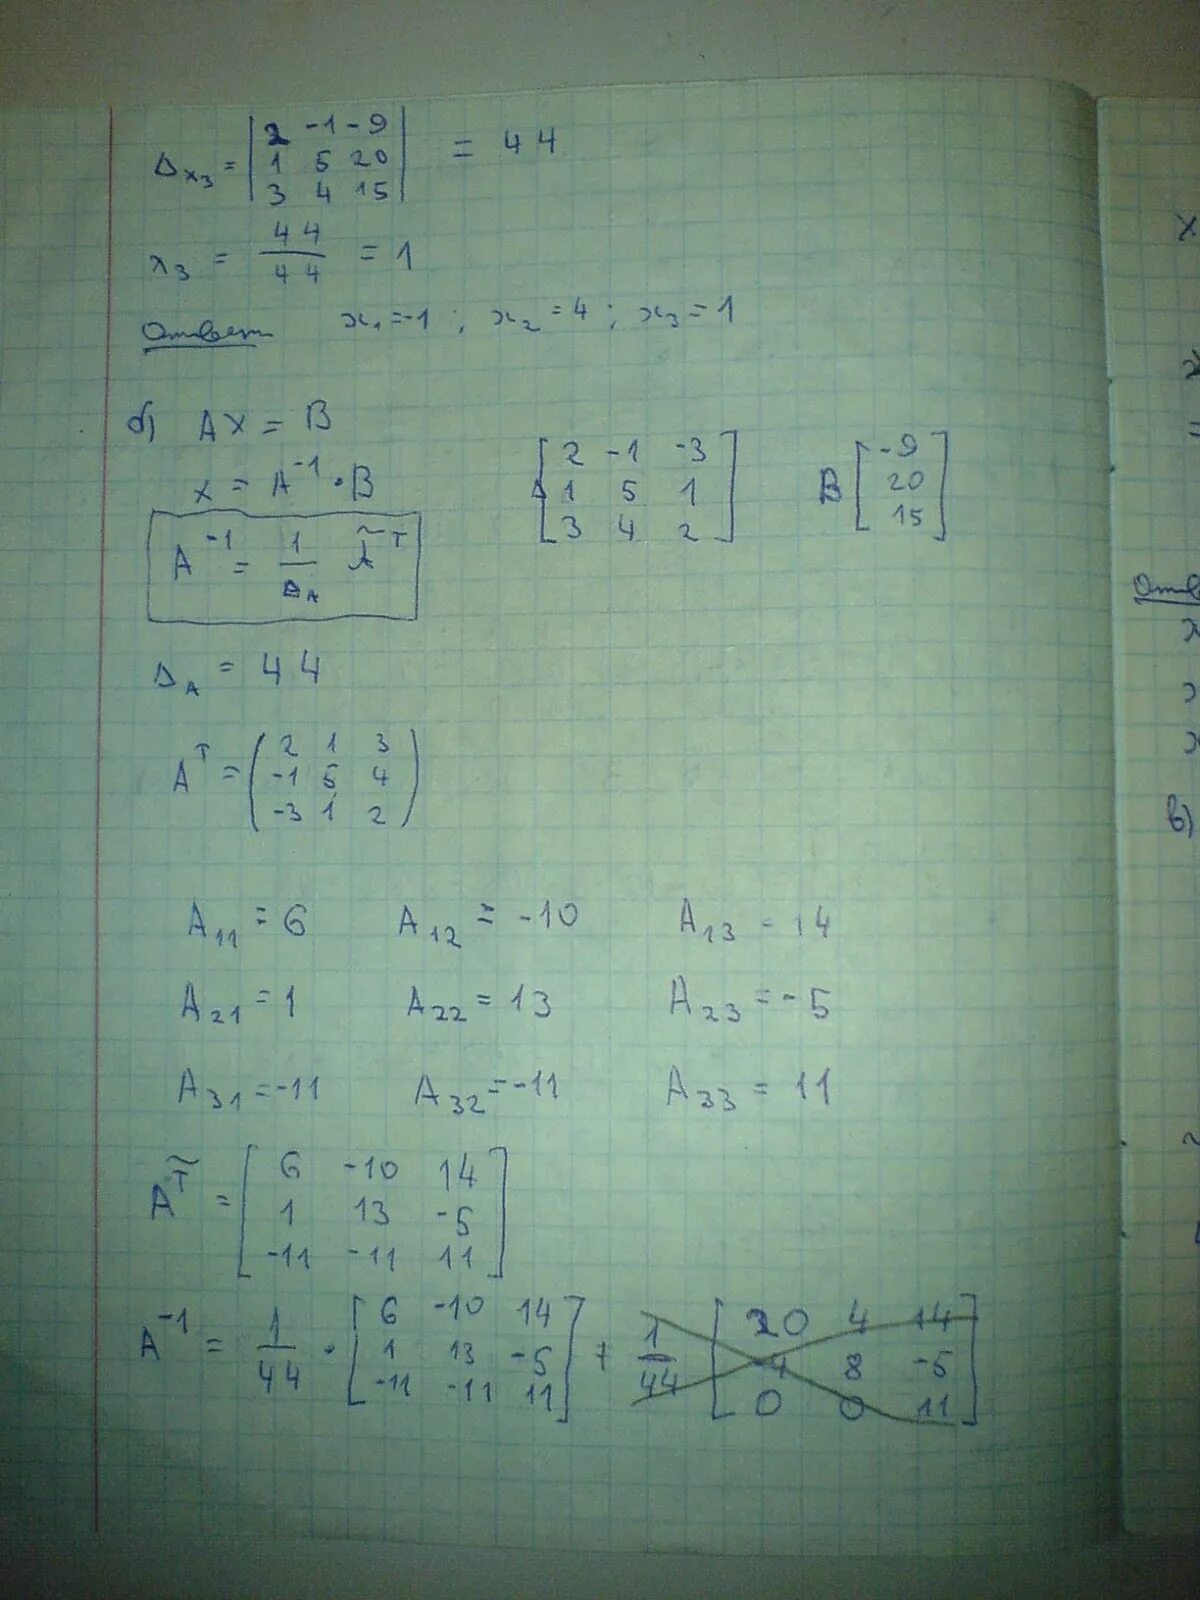 Δx₃ = | 2 -1 -9 |
| 1 5 20 | = 44
| 3 4 15 |
x₃ = 44/44 = 1
Ответ x₁=-1 ; x₂=4 ; x₃=1
б) AX = B
x = A⁻¹ · B
A⁻¹ = 1/Δ_A Ã^T
[ 2 -1 -3 ]
[ 1 5 1 ]
[ 3 4 2 ]
B [ -9 ]
[ 20 ]
[ 15 ]
Δ_A = 44
A^T = ( 2 1 3 )
( -1 5 4 )
( -3 1 2 )
A₁₁ = 6 A₁₂ = -10 A₁₃ = 14
A₂₁ = 1 A₂₂ = 13 A₂₃ = -5
A₃₁ = -11 A₃₂ = -11 A₃₃ = 11
Ã^T = [ 6 -10 14 ]
[ 1 13 -5 ]
[ -11 -11 11 ]
A⁻¹ = 1/44 · [ 6 -10 14 ]
[ 1 13 -5 ]
[ -11 -11 11 ]
1/44 [ 20 4 14 ]
[ -4 8 -5 ]
[ 0 0 11 ]
x
в)